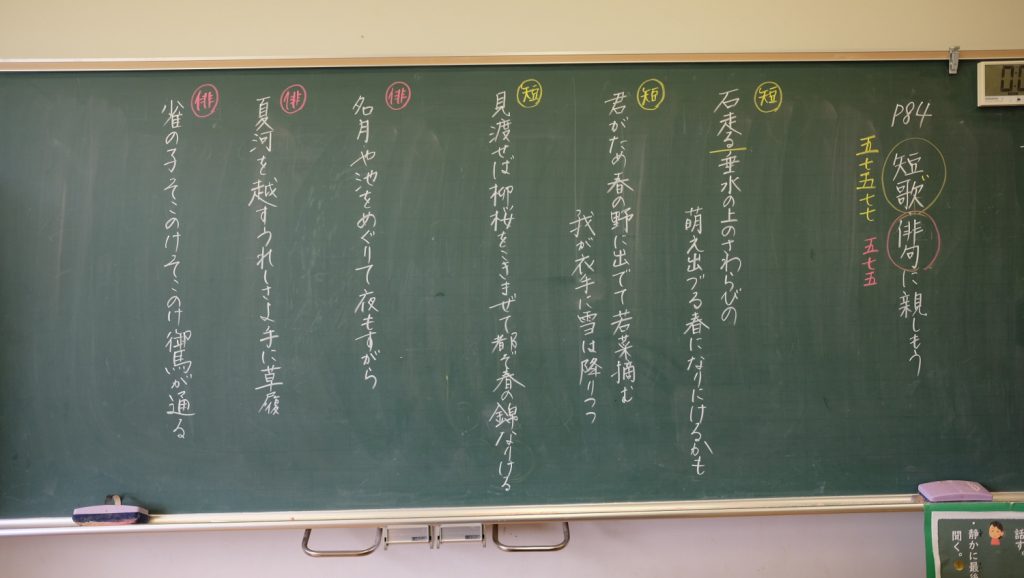 P84
短歌・俳句に親しもう
五七五七七 五七五
短
石走る垂水の上のさわらびの
萌え出づる春になりにけるかも
短
君がため春の野に出でて若菜摘む
我が衣手に雪は降りつつ
短
見渡せば柳桜をこきまぜて都ぞ春の錦なりける
俳
名月や池をめぐりて夜もすがら
俳
夏河を越すうれしさよ手に草履
俳
雀の子そこのけそこのけ御馬が通る
話す
・静かに最後
聞く。